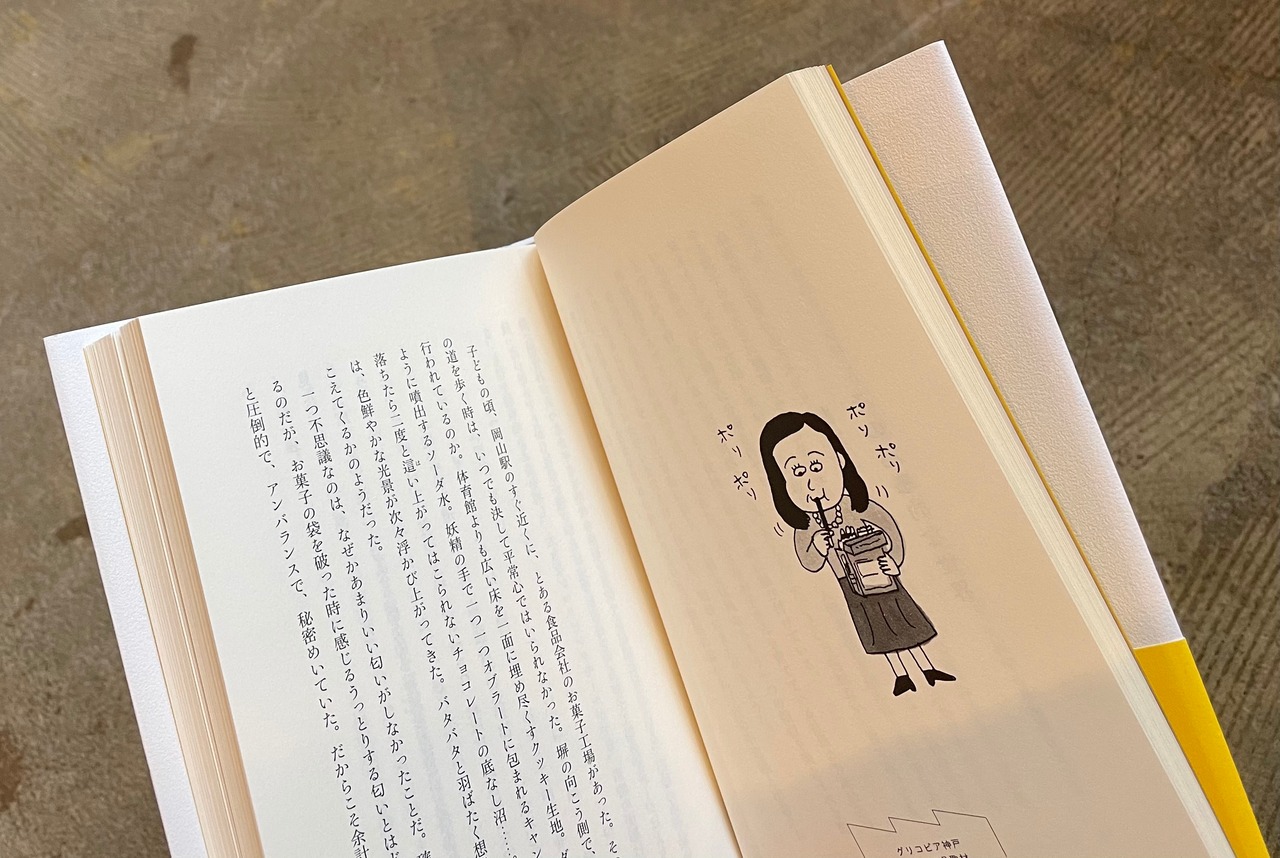 ポリ
ポリ
ポリ
ポリ
グリコピア神戸
子どもの頃、岡山駅のすぐ近くに、とある食品会社のお菓子工場があった。そ
の道を歩く時は、いつでも決して平常心ではいられなかった。塀の向こう側で、
行われているのか。体育館よりも広い床を一面に埋め尽くすクッキー生地。ダ
ように噴出するソーダ水。妖精の手で一つ一つオブラートに包まれるキャン
落ちたら二度と這い上がってはこられないチョコレートの底なし沼……。
は、色鮮やかな光景が次々浮かび上がってきた。バタバタと羽ばたく想
こえてくるかのようだった。
一つ不思議なのは、なぜかあまりいい匂いがしなかったことだ。
るのだが、お菓子の袋を破った時に感じるうっとりする匂いとは
と圧倒的で、アンバランスで、秘密めいていた。だからこそ余計